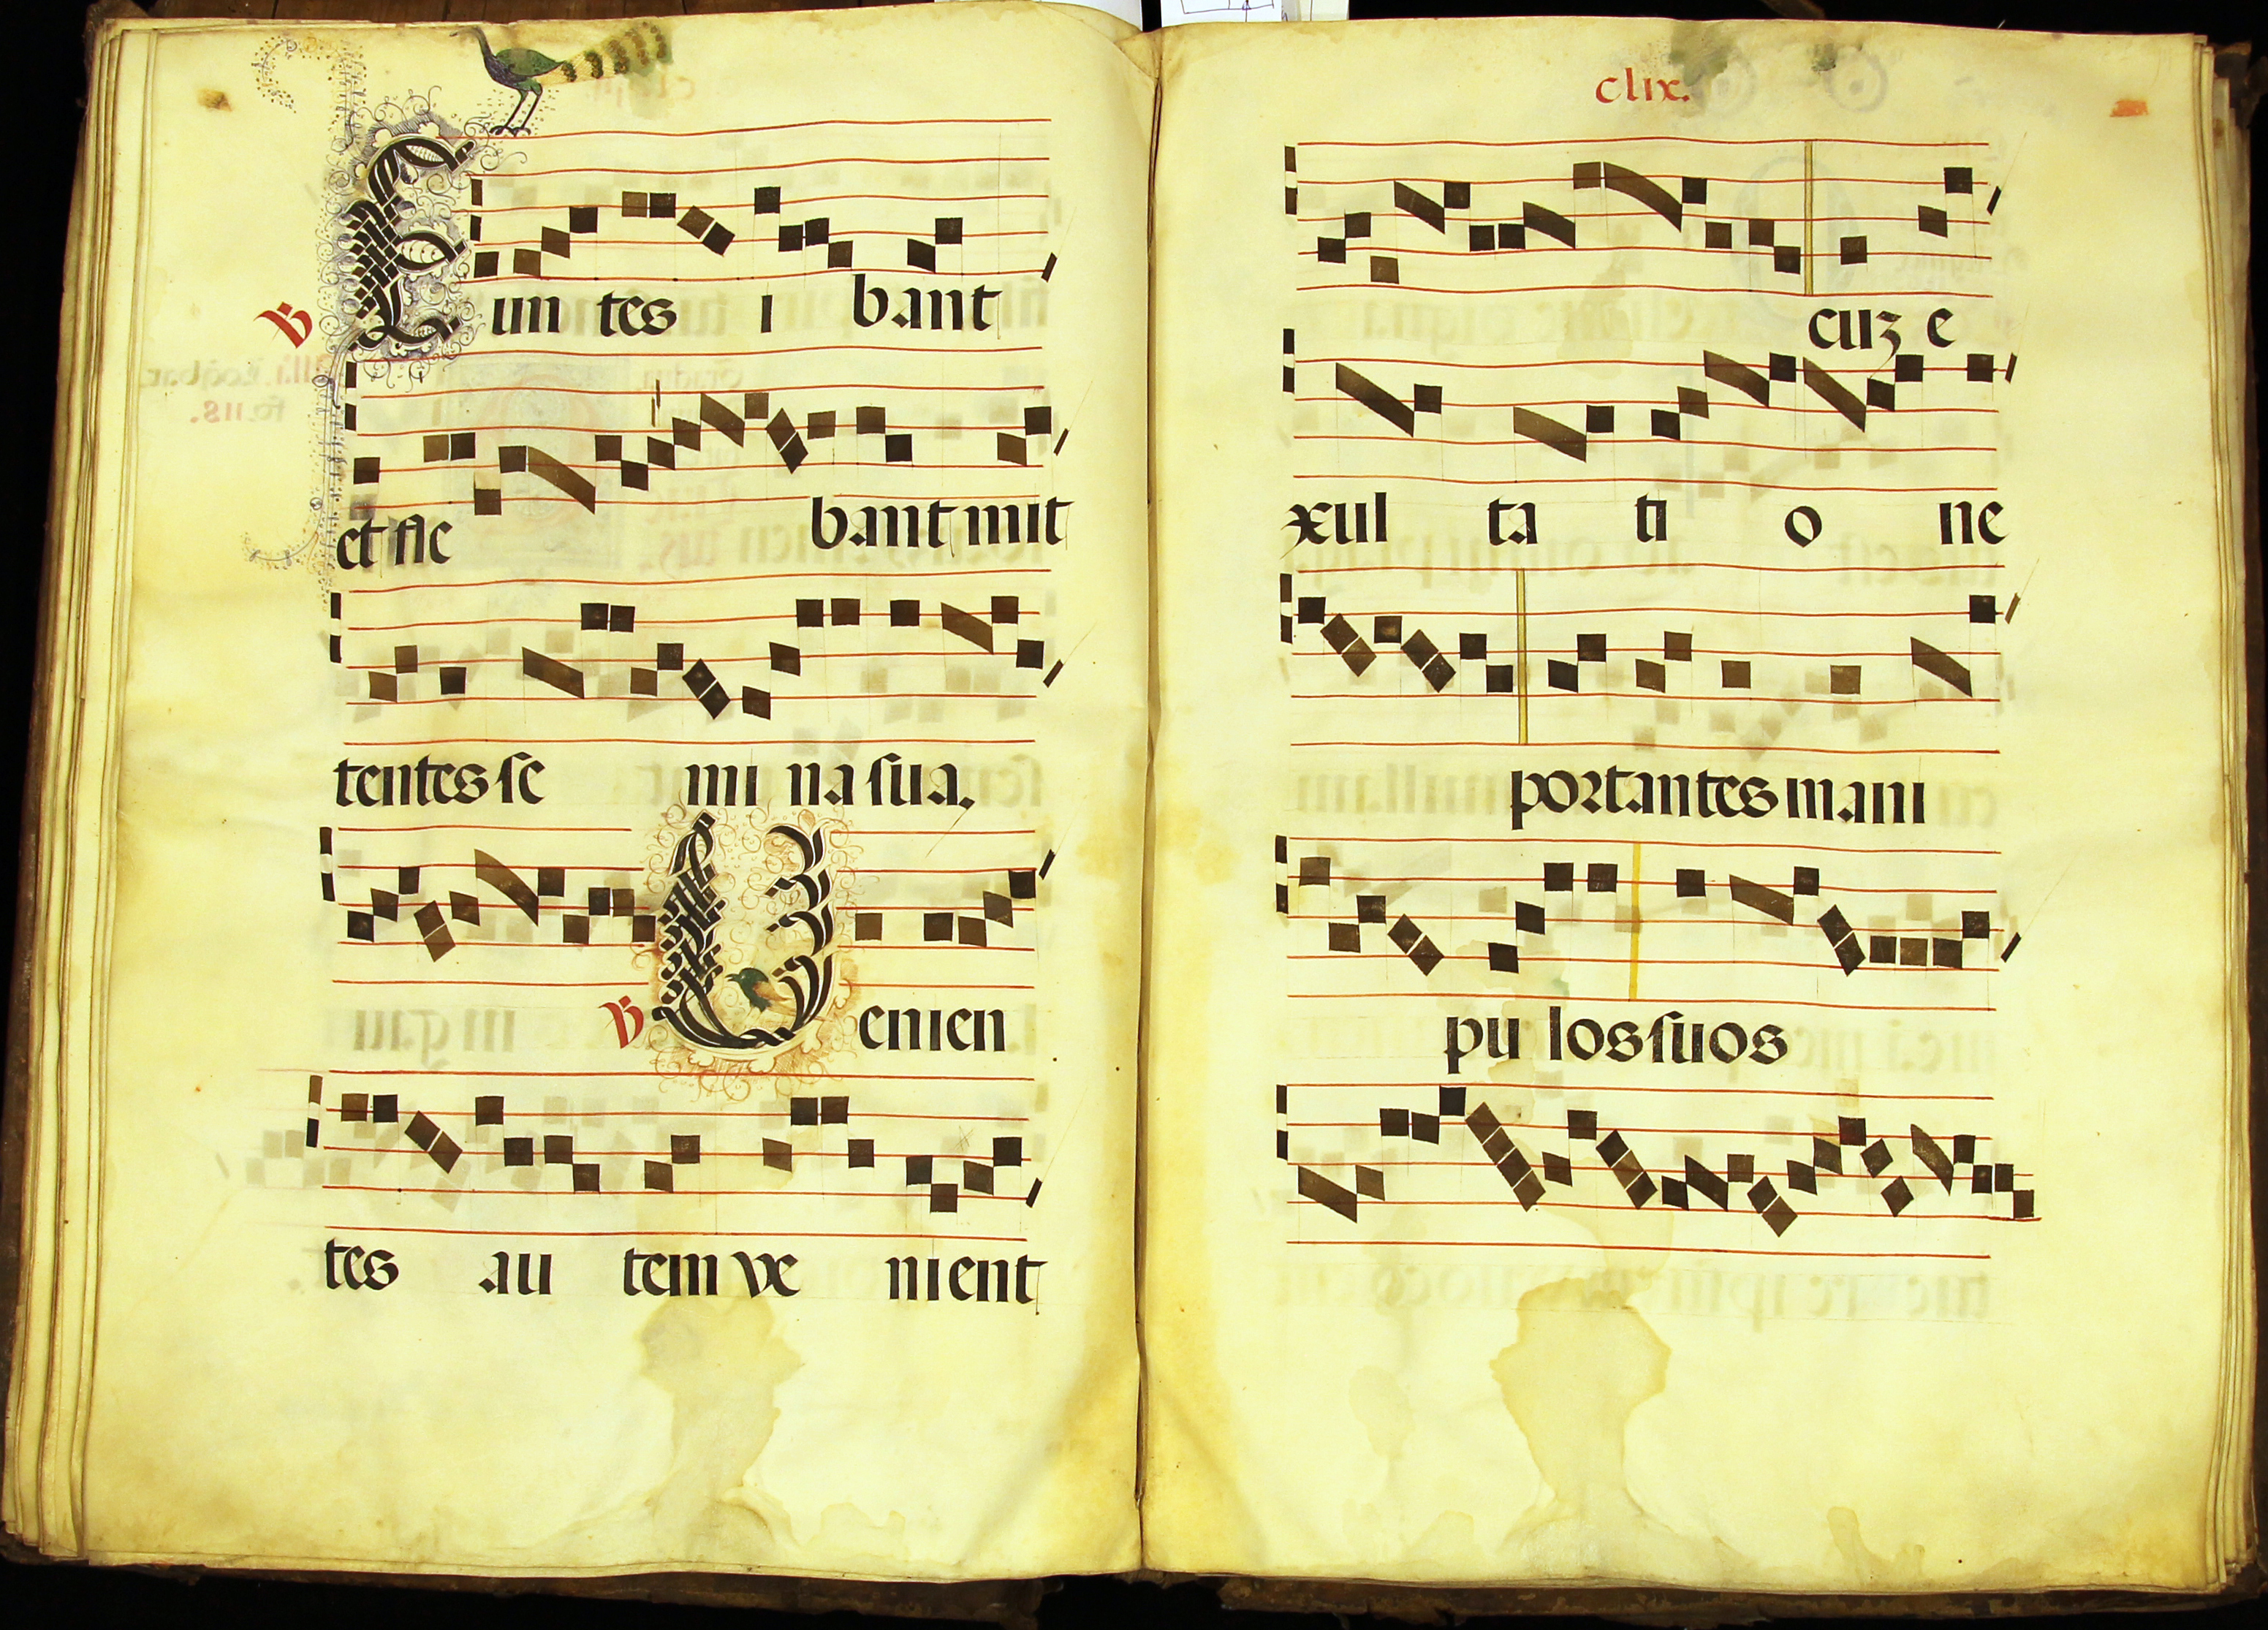 ℣ Eun tes i bant
et fle bant mit
tentes se mi na sua.
℣ Uenien
tes au tem ve nient
clix.
cuʒ e
xul ta ti o ne
portantes mani
pu los suos